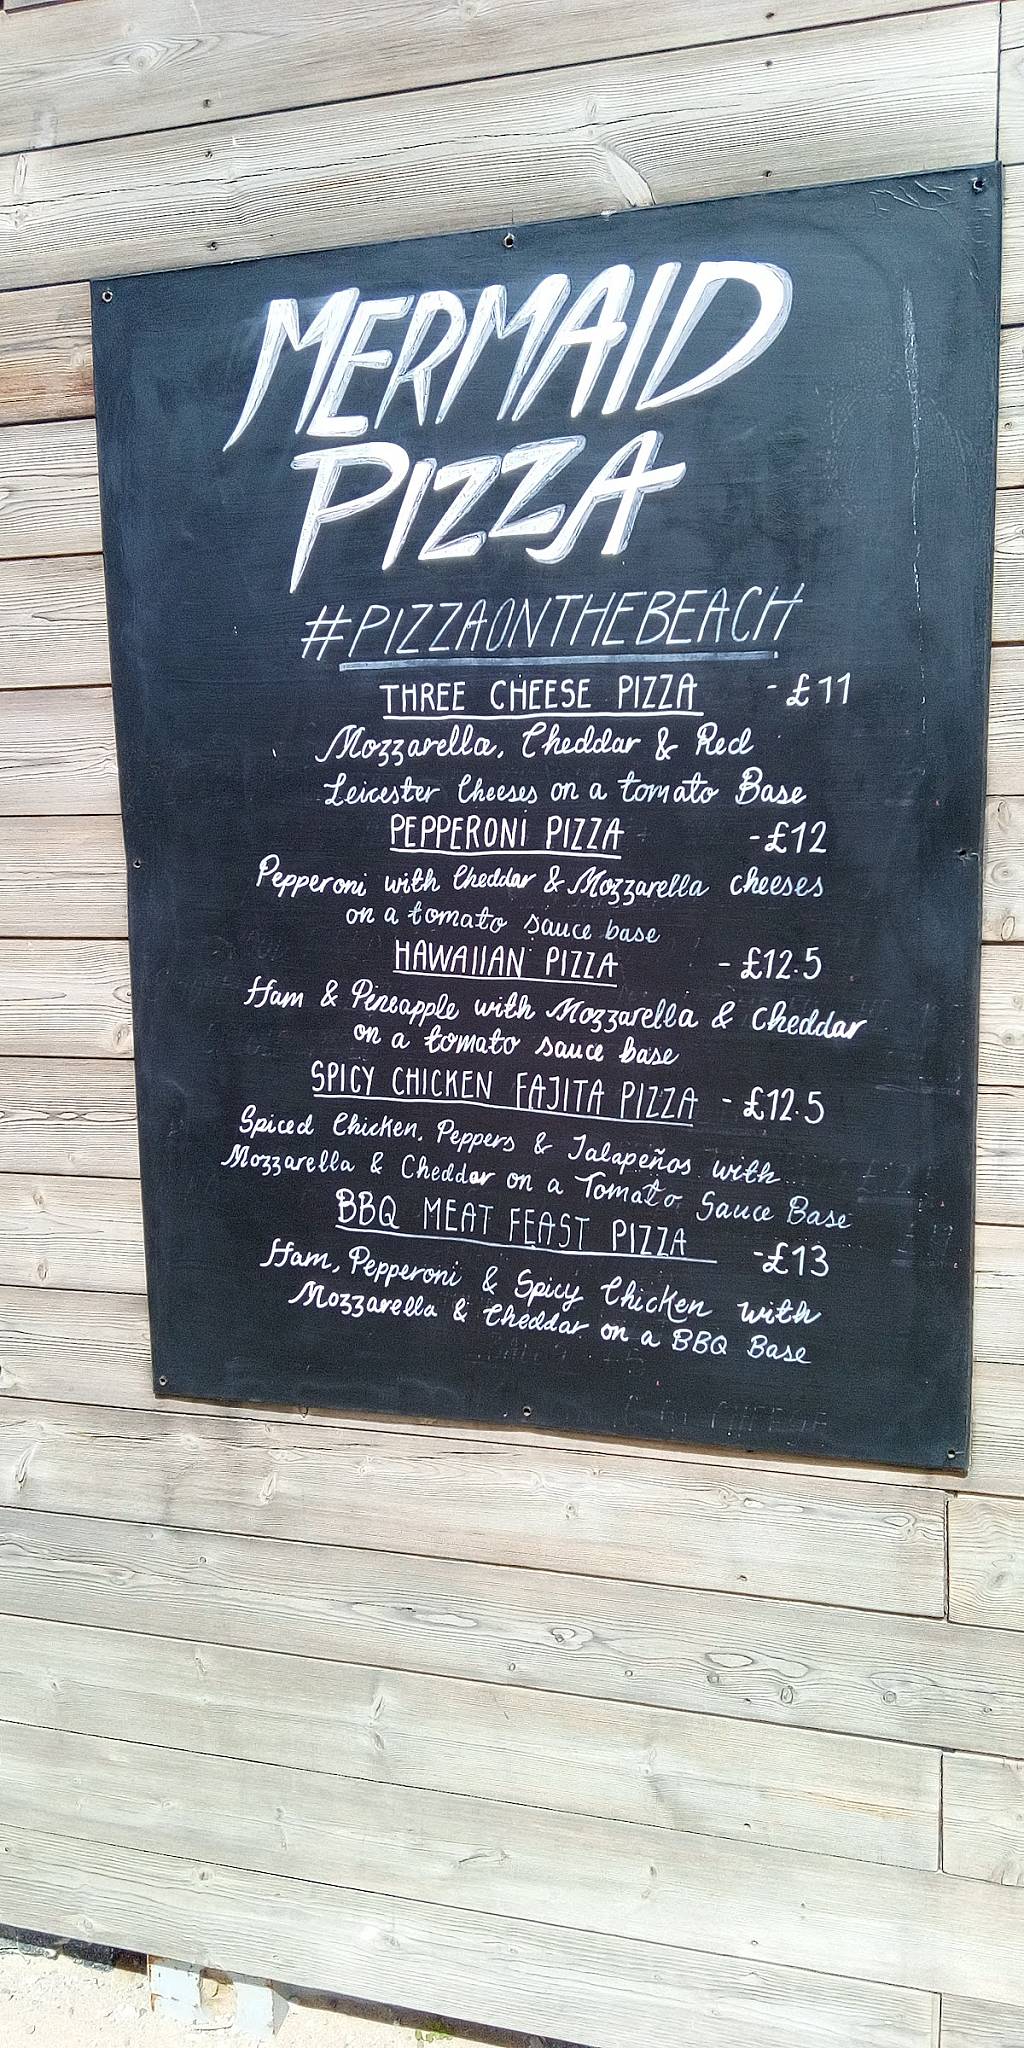 MERMAID
PIZZA
#PIZZAONTHEBEACH
THREE CHEESE PIZZA - £11
Mozzarella, Cheddar & Red
Leicester Cheeses on a tomato Base
PEPPERONI PIZZA - £12
Pepperoni with Cheddar & Mozzarella cheeses
on a tomato sauce base
HAWAIIAN PIZZA - £12.5
Ham & Pineapple with Mozzarella & Cheddar
on a tomato sauce base
SPICY CHICKEN FAJITA PIZZA - £12.5
Spiced Chicken, Peppers & Jalapeños with
Mozzarella & Cheddar on a Tomato Sauce Base
BBQ MEAT FEAST PIZZA - £13
Ham, Pepperoni & Spicy Chicken with
Mozzarella & Cheddar on a BBQ Base